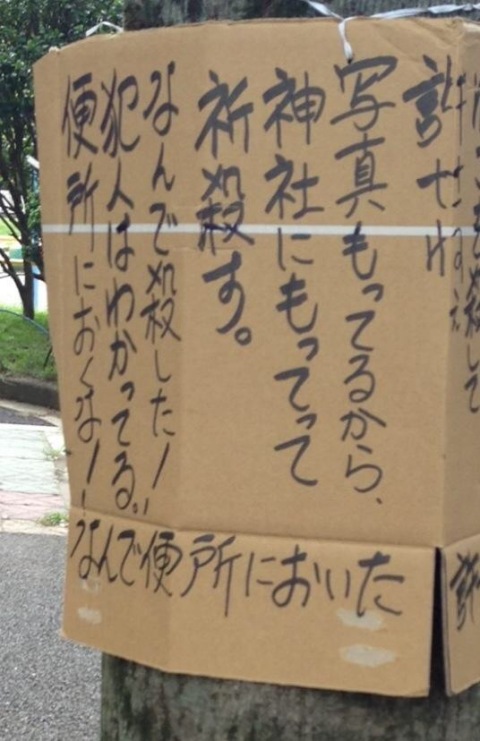 許せね
写真もってるから、
神社にもってって
祈殺す。
なんで殺した！！
犯人はわかってる。
便所におくな！！
なんで便所においた